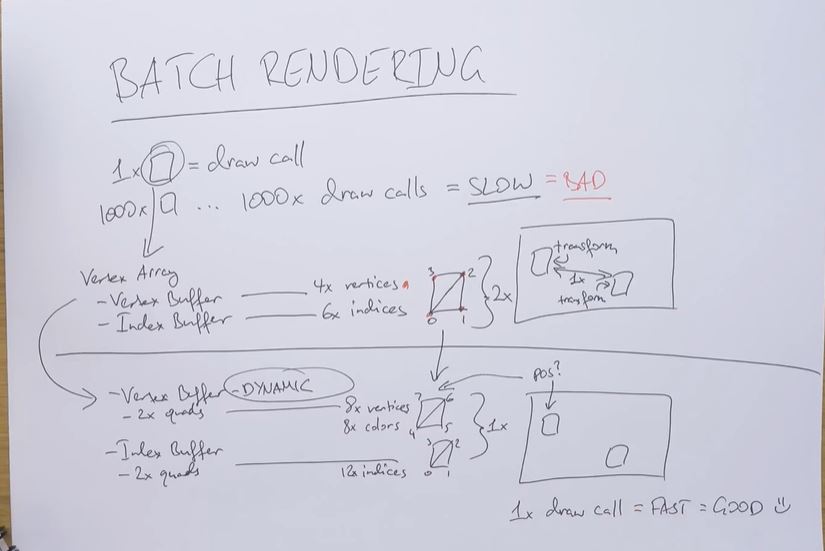 BATCH RENDERING
1x = draw call
1000x ... 1000x draw calls = SLOW = BAD
Vertex Array
- Vertex Buffer 4x vertices
- Index Buffer 6x indices
3 2
0 1
2x
transform
1x
transform
- Vertex Buffer - DYNAMIC
- 2x quads
8x vertices
8x colors
7 6
4 5
3 2
0 1
1x
pos?
- Index Buffer
- 2x quads
12x indices
1x draw call = FAST = GOOD